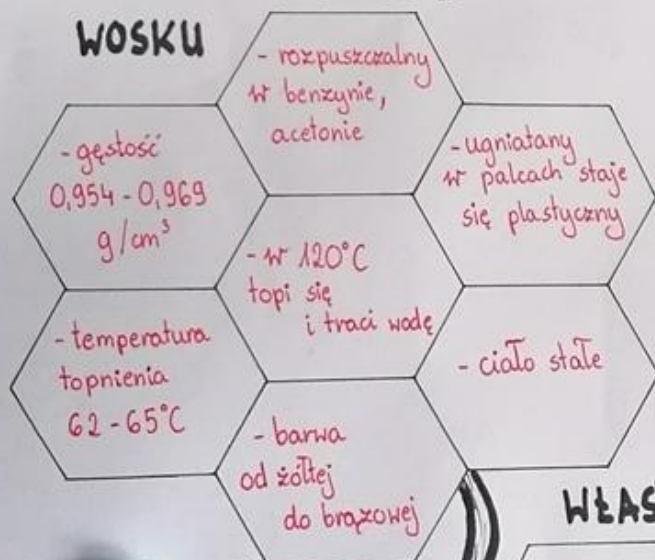 WOSKU
- rozpuszczalny
w benzynie,
acetonie
- gęstość
0,954 - 0,969
g/cm³
- ugniatany
w palcach staje
się plastyczny
- w 120°C
topi się
i traci wodę
- temperatura
topnienia
62 - 65°C
- ciało stałe
- barwa
od żółtej
do brązowej
WŁAS